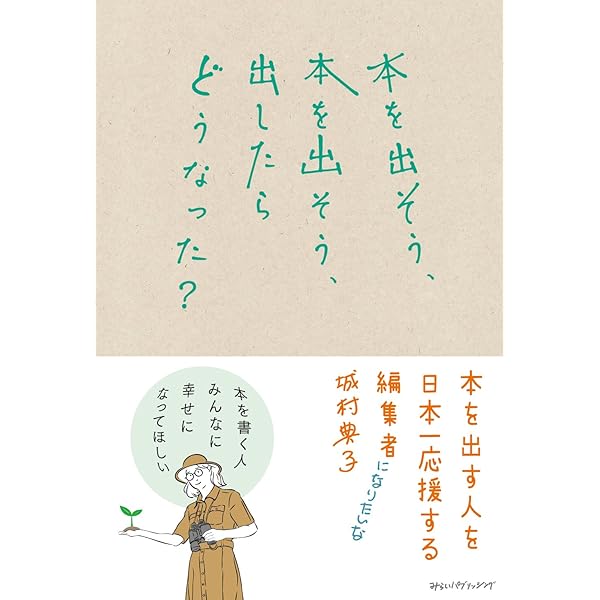 本を出そう、
本を出そう、
出したら
どうなった?
本を出す人を
日本一応援する
編集者になりたいな
城村典子
本を書く人
みんなに
幸せに
なってほしい
みらいパブリッシング